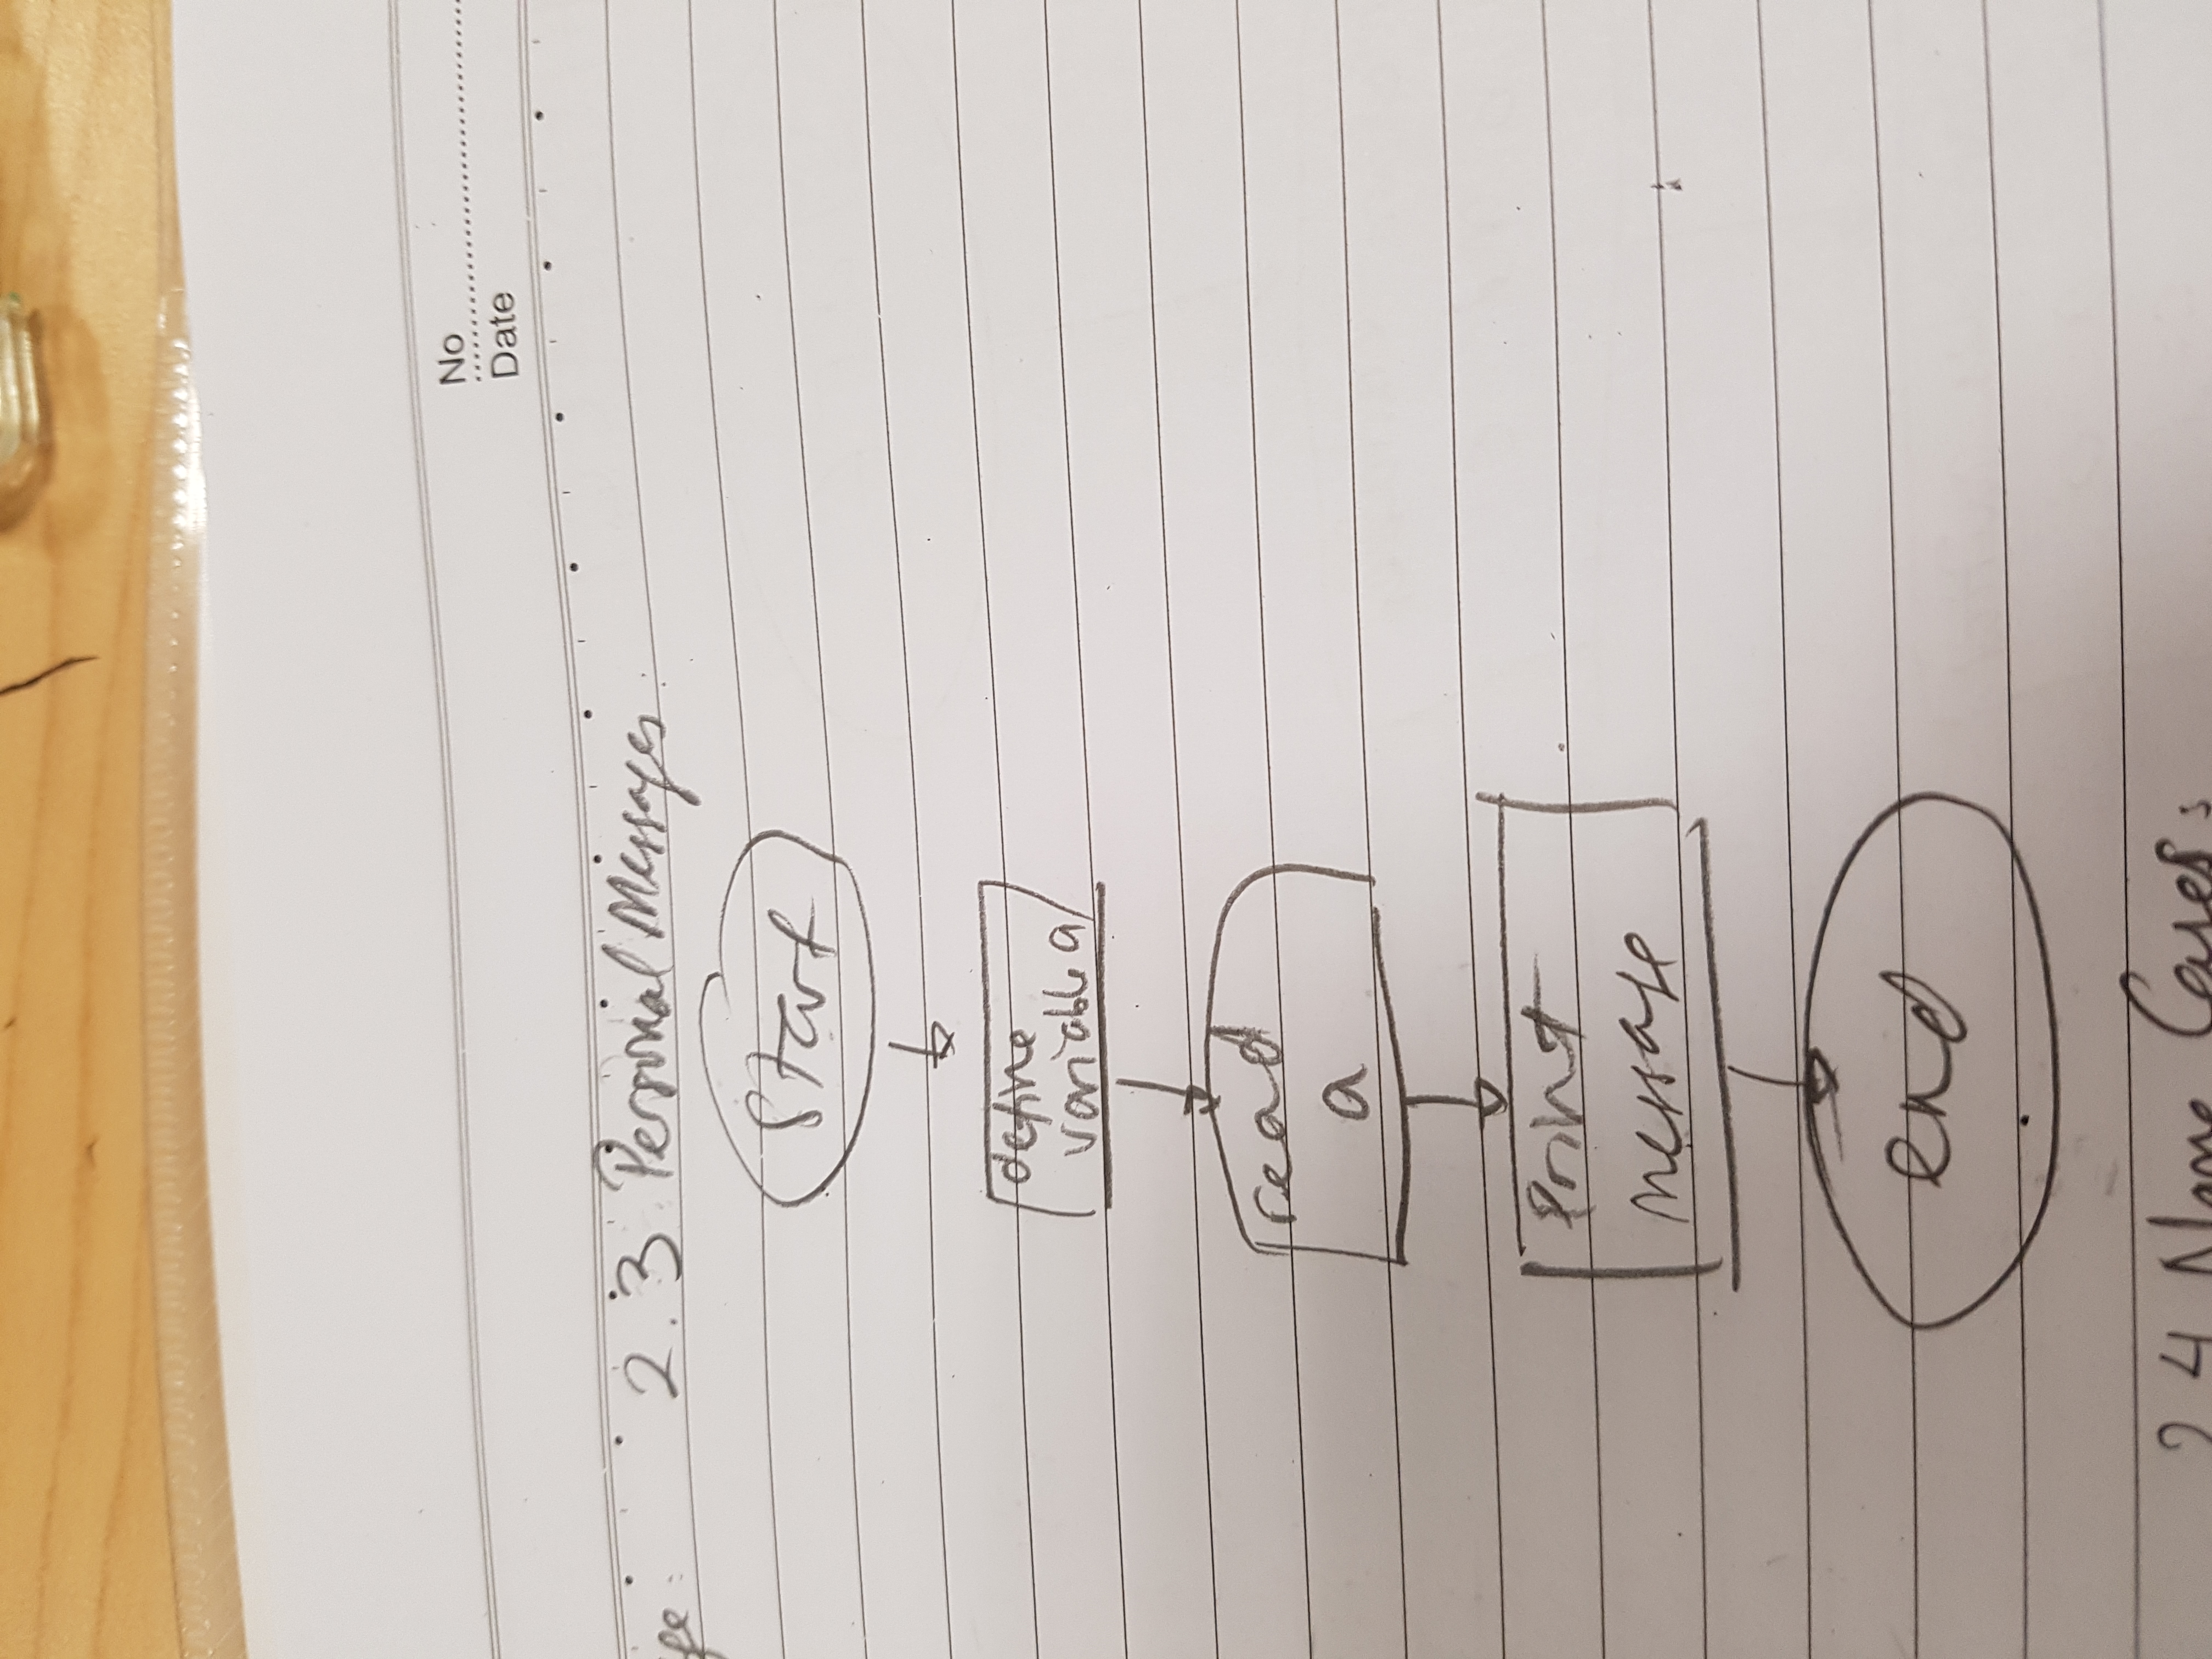 No
Date
2.3 Personal Messages:
Start
define
variable a
read
a
Print
message
end
2.4 Name Cases: